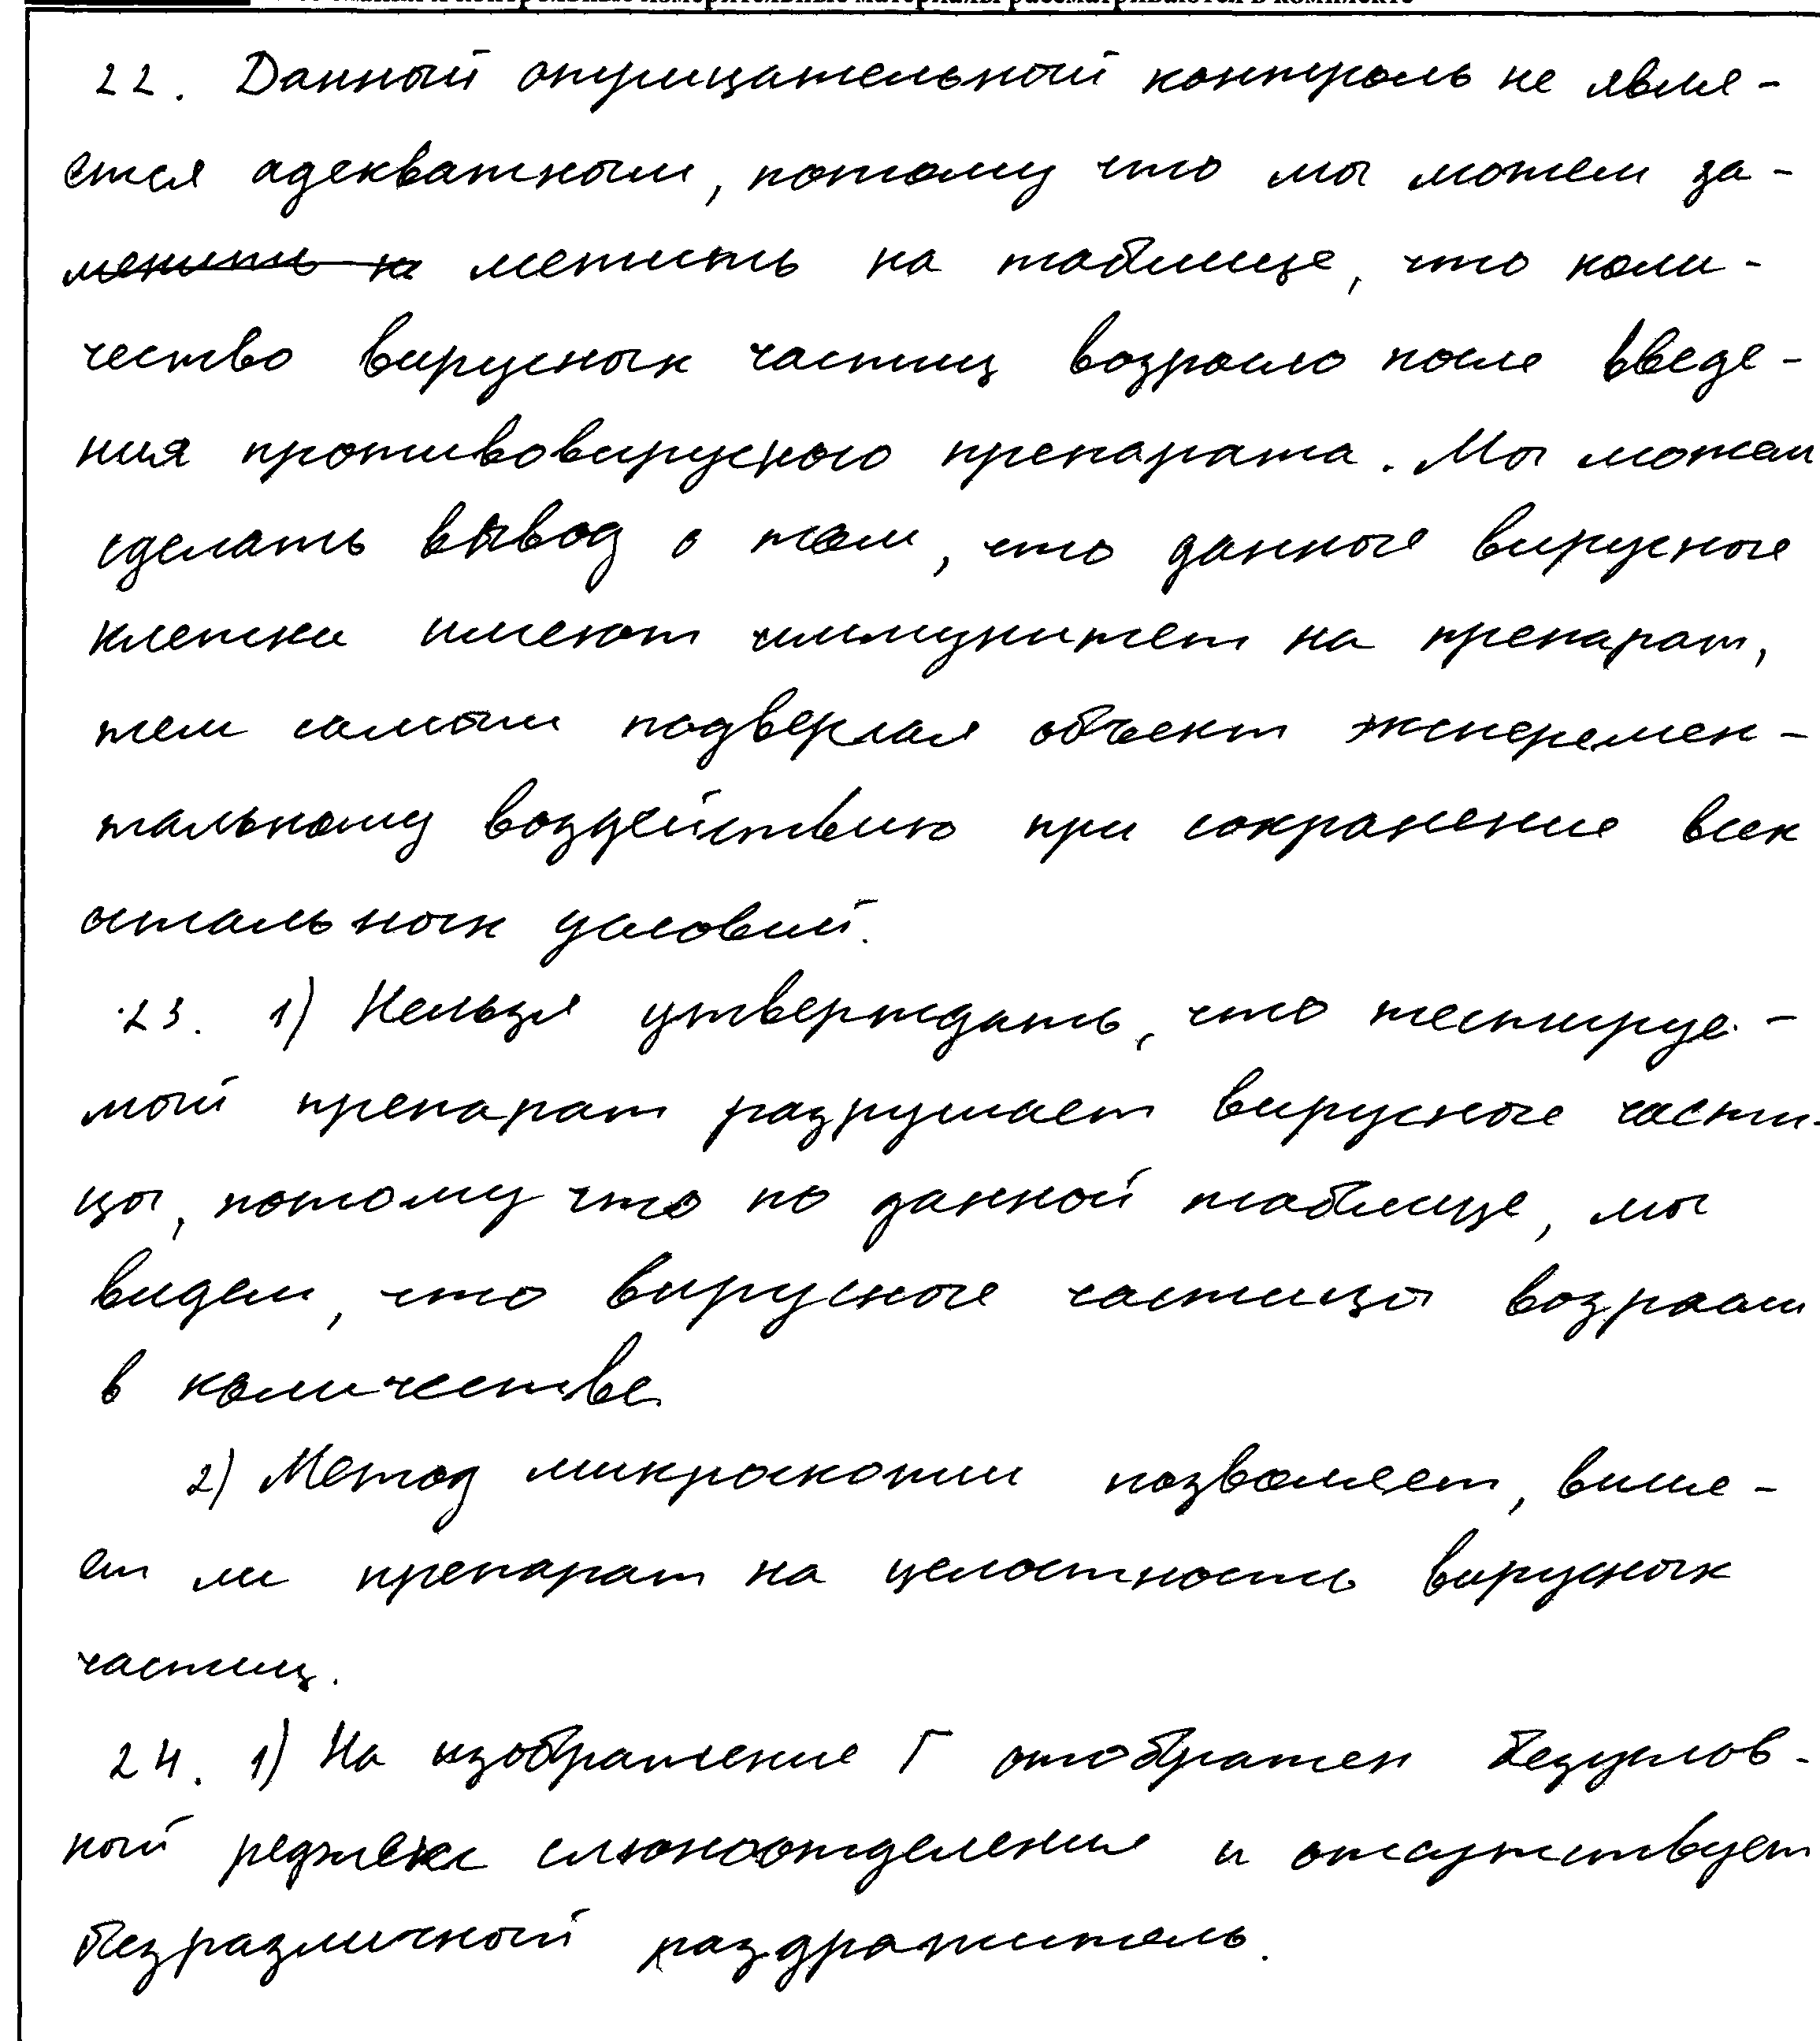 22. Данный отрицательный контроль не явля-
ется адекватным, потому что мы можем за-
менить на метить на таблице, что коли-
чество вирусных частиц возросло после введе-
ния противовирусного препарата. Мы можем
сделать вывод о том, что данные вирусные
клетки имеют иммунитет на препарат,
тем самым подвергая объект эксперемен-
тальному воздействию при сохранение всех
остальных условий.
23. 1) Нельзя утверждать, что тестируе-
мый препарат разрушает вирусные части-
цы, потому что по данной таблице, мы
видем, что вирусные частицы возрат
в количестве
2) Метод микроскопии позволяет, вле-
ет ли препарат на целостность вирусных
частиц.
24. 1) На изображение Г отображен безуслов-
ный рефлекс слюноотделения и отсутствует
безразличный раздражитель.